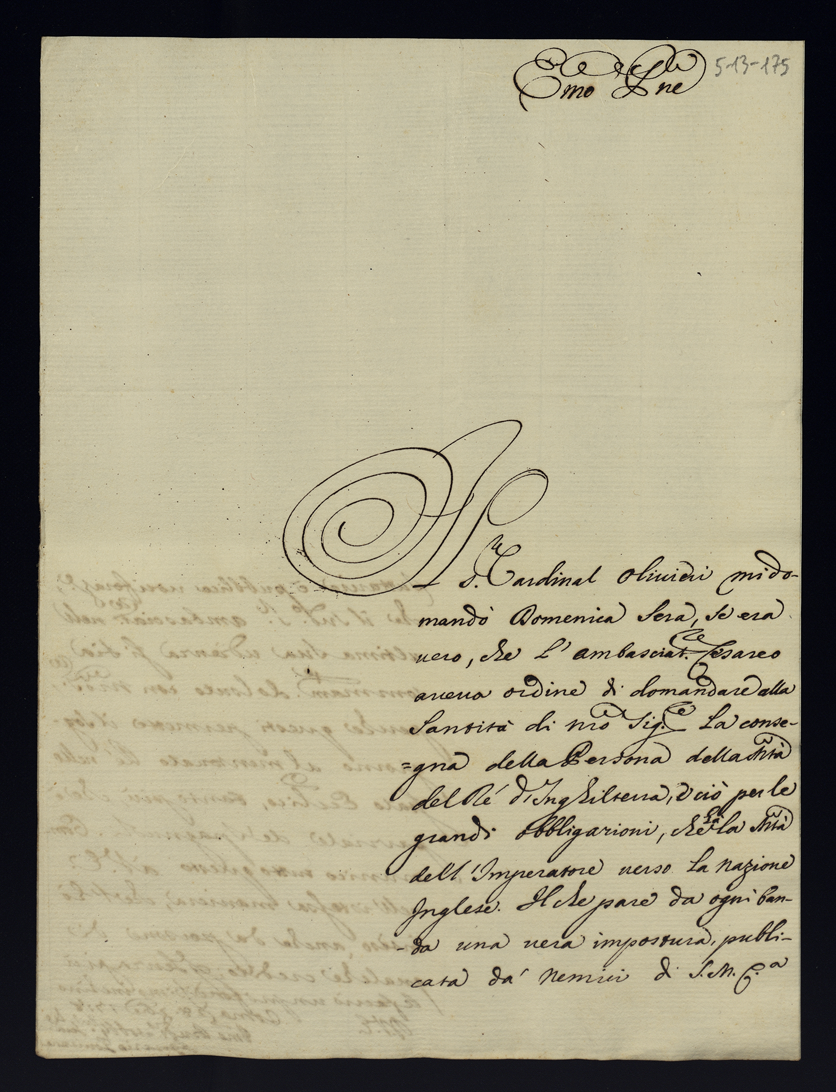 5-13-175
Emo Pne
Il Sr. Cardinal Olivieri mi do-
mandò Domenica sera, se era
vero, che l'ambasciat.re Cesareo
aveva ordine di domandare alla
Santità di nro Sig.re la conse-
=gna della Persona della Mtà
del Ré d'Inghilterra, e ciò per le
grandi obbligazioni, che hà la Mtà
dell'Imperatore verso la nazione
Inglese. Il che pare da ogni ban-
-da una vera impostura, publi-
cata da' nemici di S.M.C.a